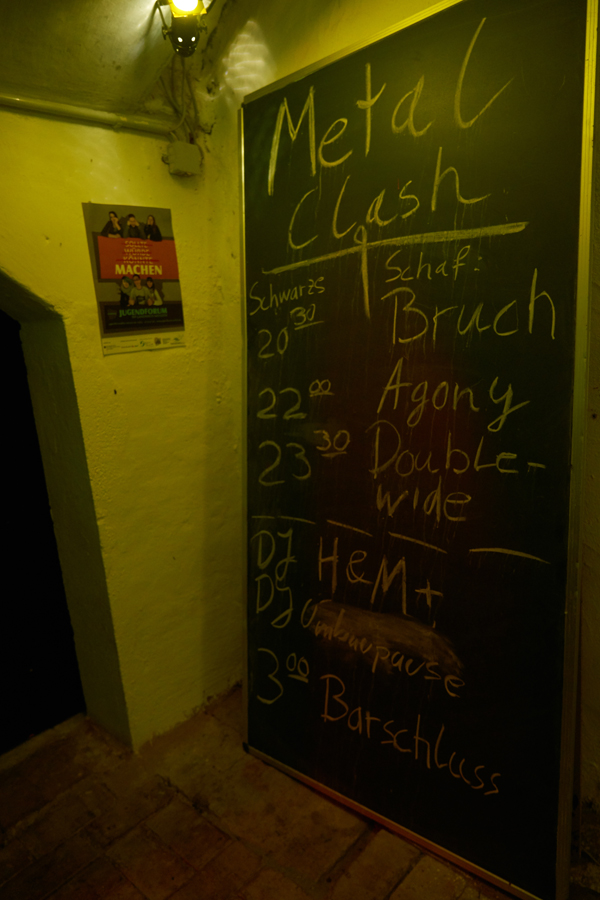 Metal
Clash
Schwarzs Schaf:
20 30 Bruch
22 00 Agony
23 30 Double-
wide
DJ H&M +
DJ Umbaupause
3 00 Barschluss
MACHEN
JUGENDFORUM